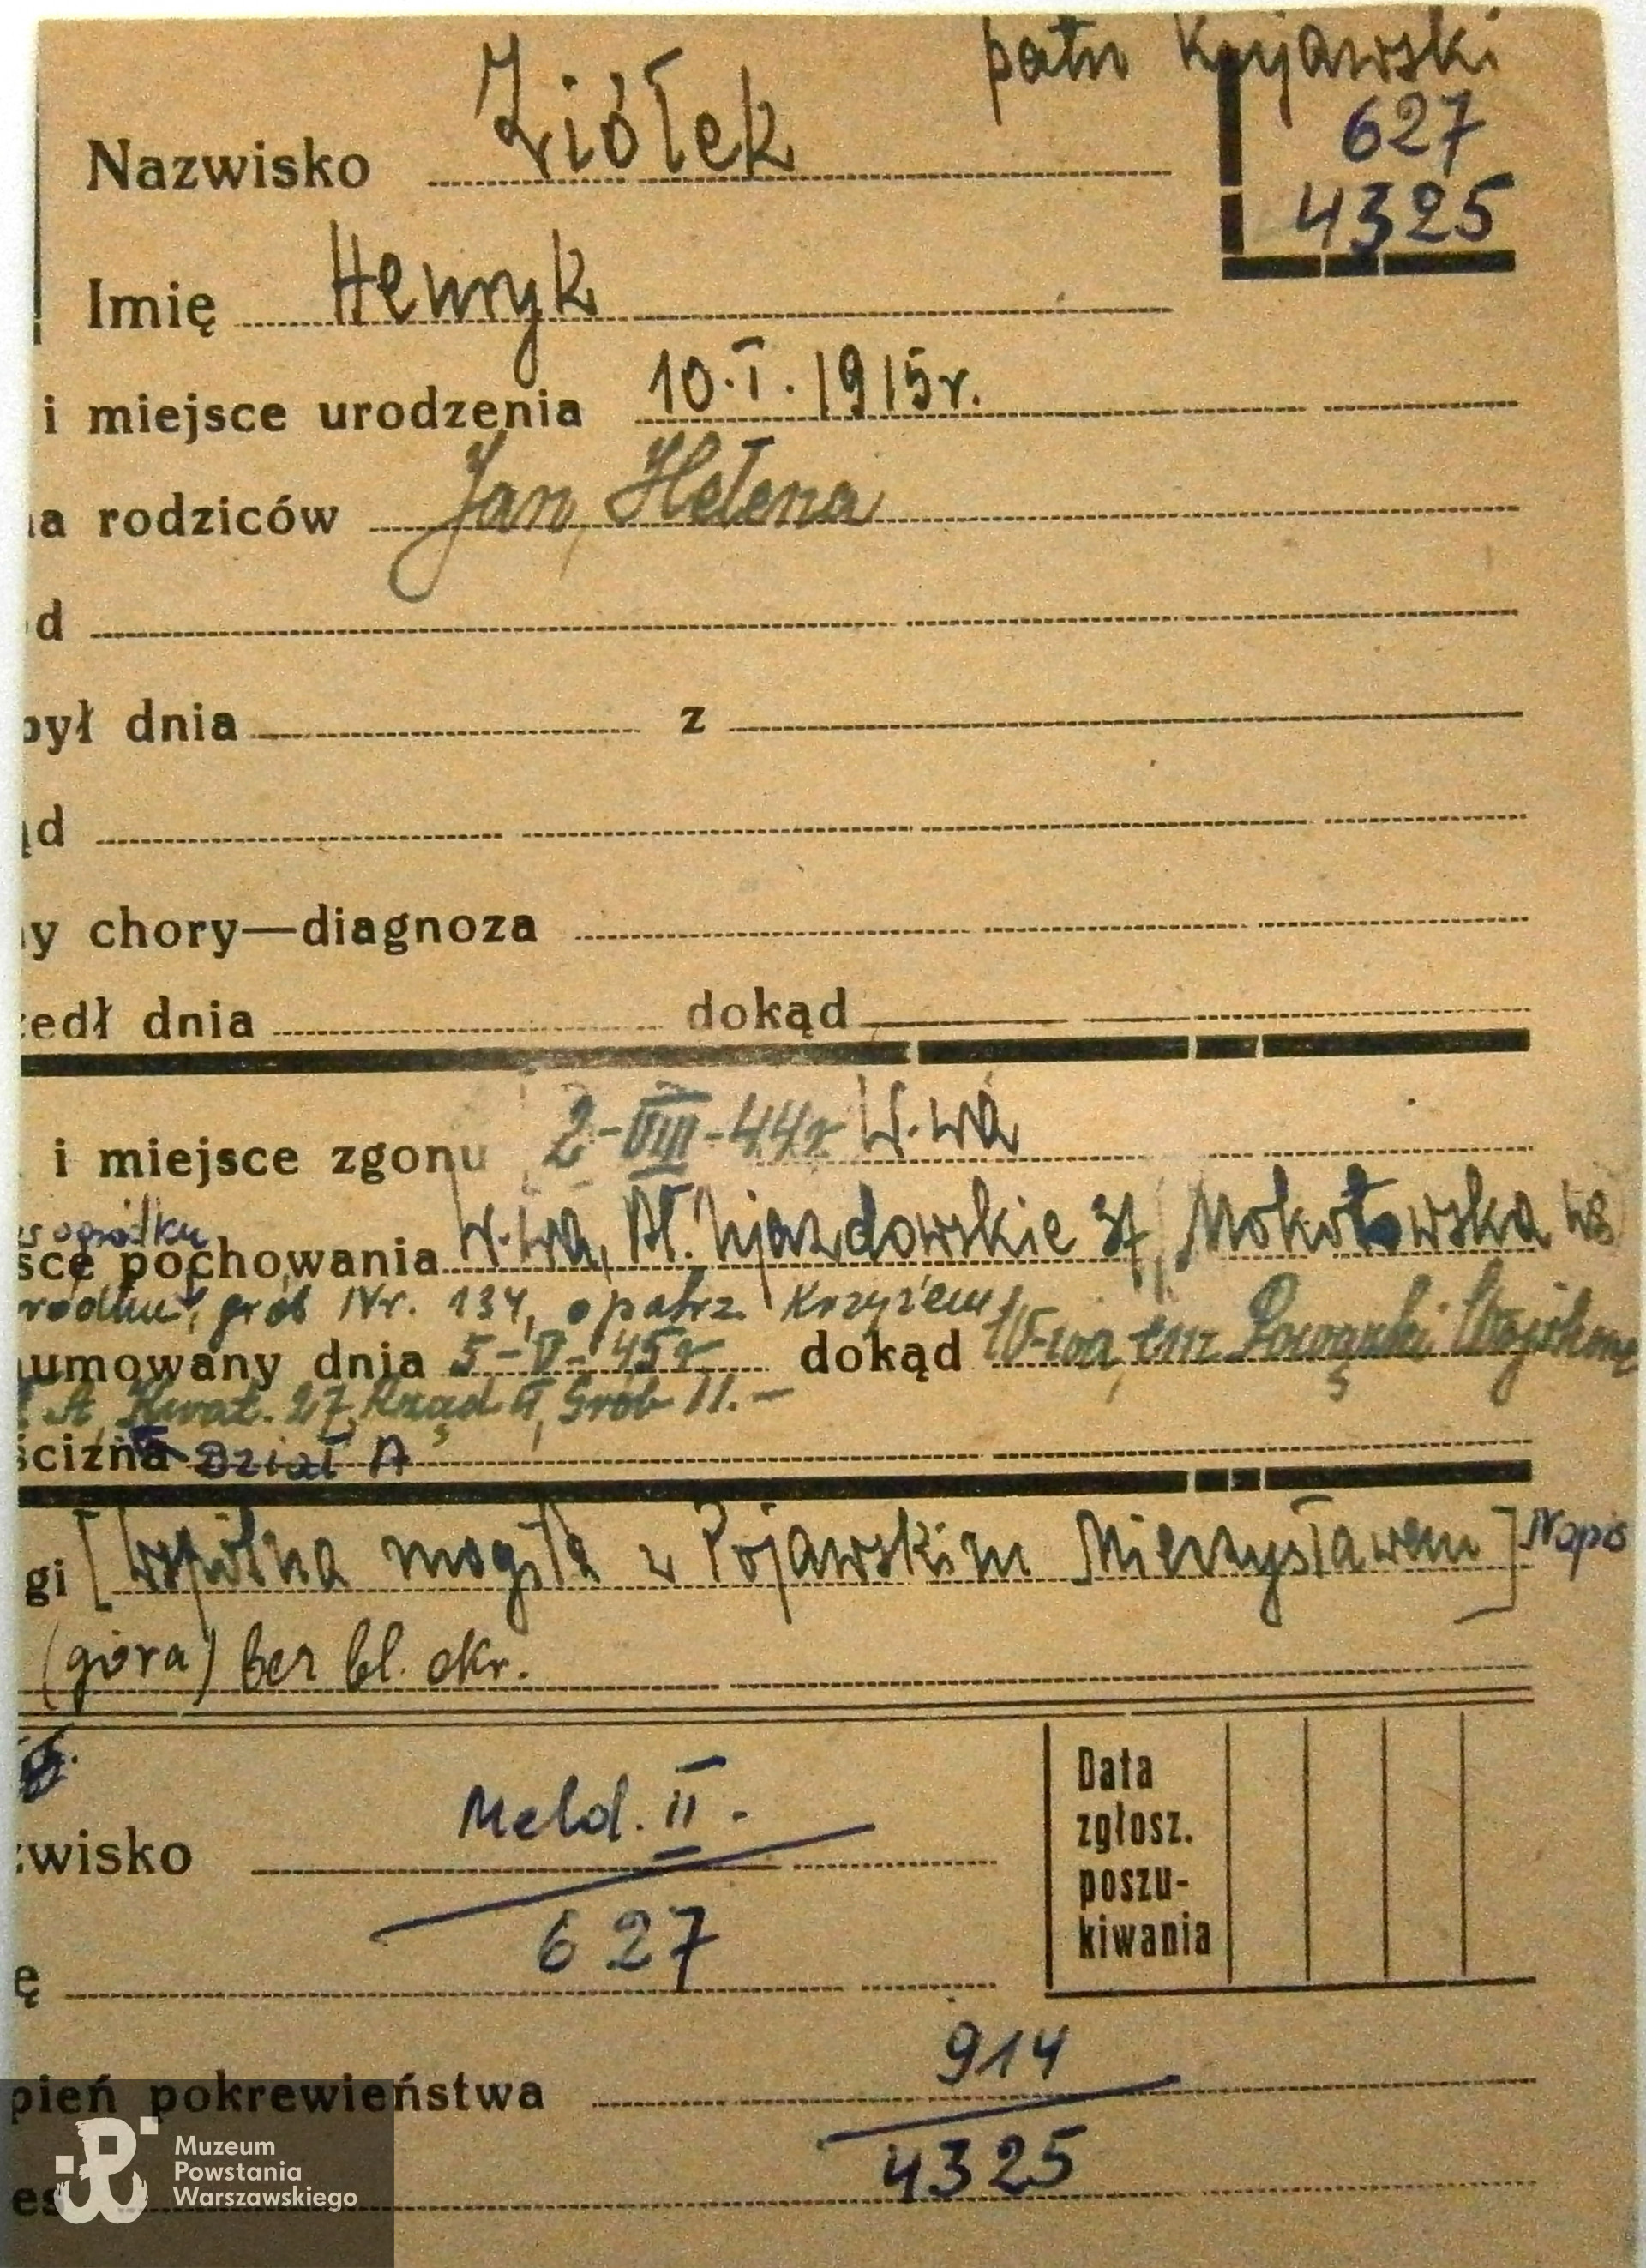 patrz Kujawski
Nazwisko Ziółek
627
4325
Imię Henryk
i miejsce urodzenia 10.I.1915r.
a rodziców Jan, Helena
d
był dnia z
d
y chory—diagnoza
edł dnia dokąd
i miejsce zgonu 2-VIII-44r W.wa
w ogródku
sce pochowania W.wa, Al. Ujazdowskie 37, Mokotowska
grób Nr. 134, opatrz. Krzyżem
umowany dnia 5-V-45r dokąd W-wa, cm. Powązki Wojskowe
A, Kwat. 27, Rząd II, Grób 11.-
ścizna Dział A
gi [Wspólna mogiła z Pojawskim Mieczysławem] Napis
(góra) bez bl. okr.
zwisko Meld. II.
627
ę
Data
zgłosz.
poszu-
kiwania
pień pokrewieństwa 914
4325
es
Muzeum
Powstania
Warszawskiego